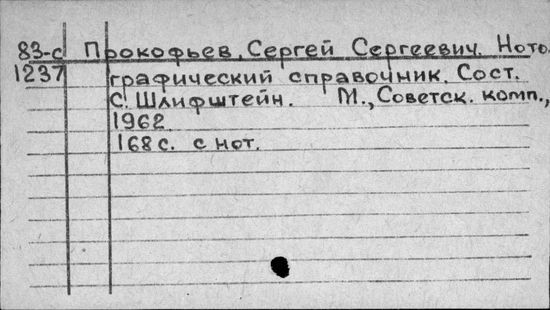 83-с Прокофьев, Сергей Сергеевич. Ното-
1237 графический справочник. Сост.
С. Шлифштейн. М., Советск. комп.,
1962.
168 с. с нот.